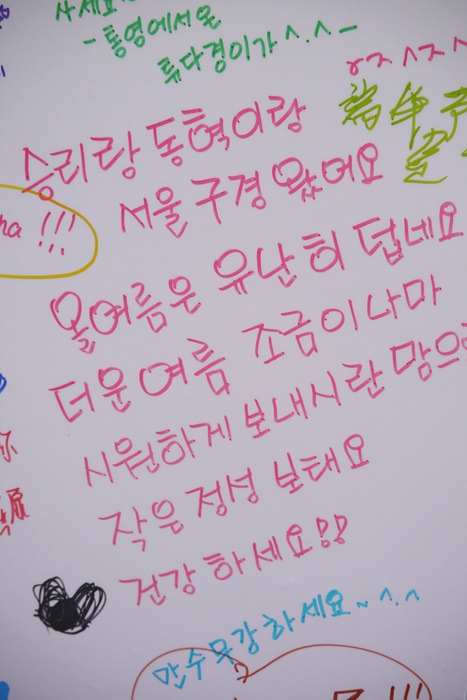 사세요
- 통영에서 온
류다경이가 ^.^ -
승리랑 동혁이랑
서울 구경 왔어요
ha !!!
올여름은 유난히 덥네요
더운 여름 조금이나마
시원하게 보내시란 맘으
작은 정성 보태요
건강 하세요!!
만수무강 하세요~ ^.^